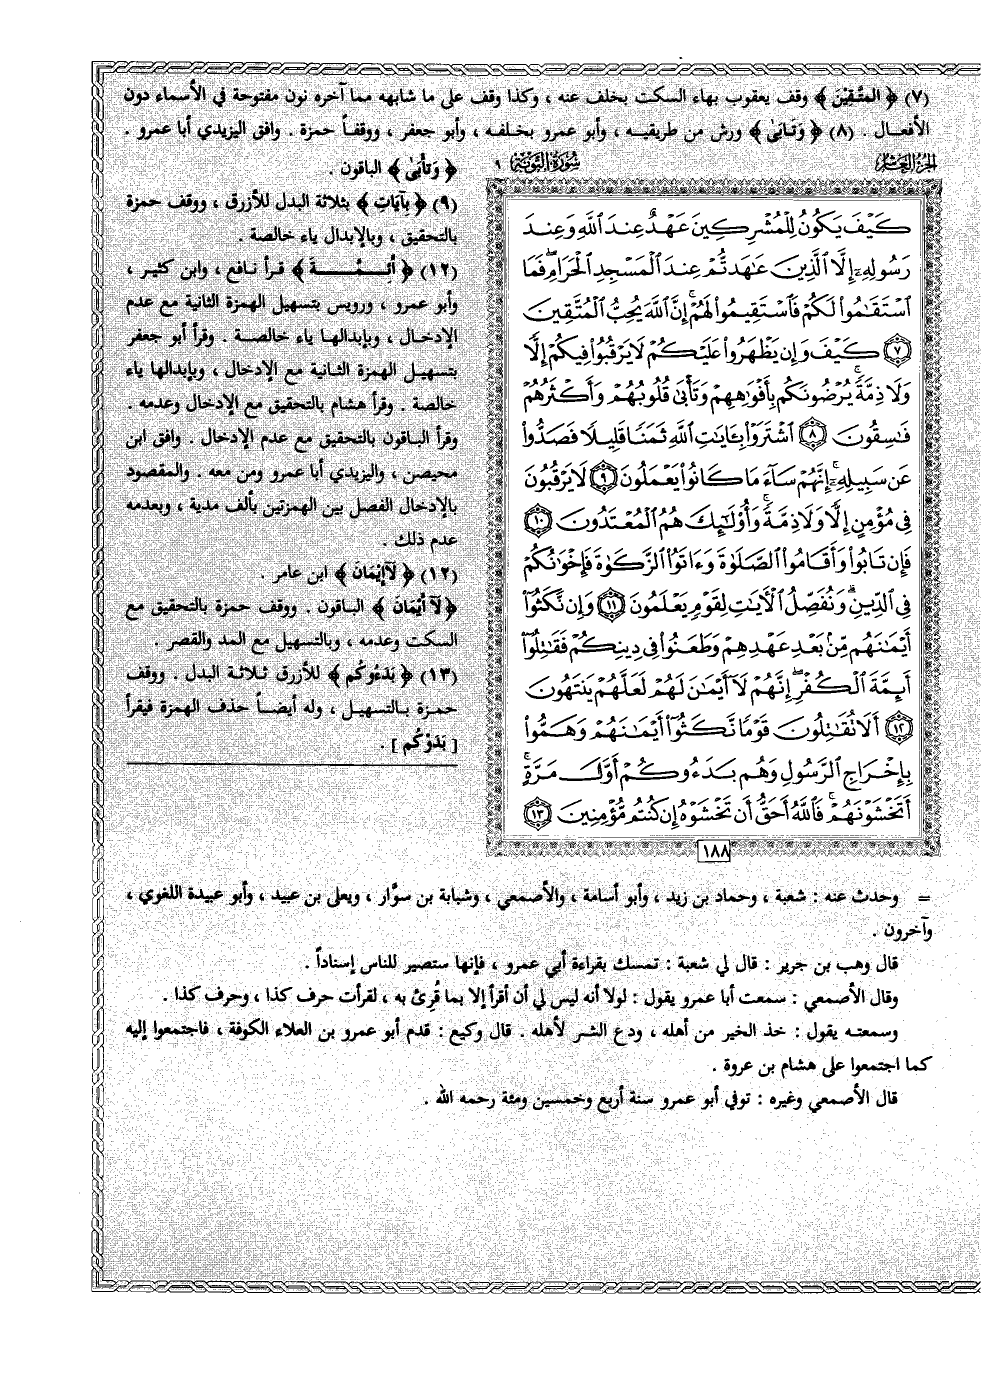 (٧) ﴿ المتَّقِيْنَ ﴾ وقف يعقوب بهاء السكت بخلف عنه ، وكذا وقف على ما شابهه مما آخره نون مفتوحة في الأسماء دون
الأفعال . (٨) ﴿ وَتَابَى ﴾ ورش من طريقيه ، وأبو عمرو بخلفه ، وأبو جعفر ، ووقفاً حمزة . وافق اليزيدي أبا عمرو .
الجزء العاشر
سورة التوبة ٩
﴿ وَتَأْبَى ﴾ الباقون .
(٩) ﴿ بِآيَاتِ ﴾ بثلاثة البدل للأزرق ، ووقف حمزة
بالتحقيق ، وبالإبدال ياء خالصة .
(١٢) ﴿ أَئِمَّةَ ﴾ قرأ نافع ، وابن كثير ،
وأبو عمرو ، ورويس بتسهيل الهمزة الثانية مع عدم
الإدخال ، وبإبدالها ياء خالصة . وقرأ أبو جعفر
بتسهيل الهمزة الثانية مع الإدخال ، وبإبدالها ياء
خالصة . وقرأ هشام بالتحقيق مع الإدخال وعدمه .
وقرأ الباقون بالتحقيق مع عدم الإدخال . وافق ابن
محيصن ، واليزيدي أبا عمرو ومن معه . والمقصود
بالإدخال الفصل بين الهمزتين بألف مدية ، وبعدمه
عدم ذلك .
(١٢) ﴿ لاَ إِيْمَانَ ﴾ ابن عامر .
﴿ لاَ أَيْمَانَ ﴾ الباقون . ووقف حمزة بالتحقيق مع
السكت وعدمه ، وبالتسهيل مع المد والقصر .
(١٣) ﴿ بَدَءُوكُم ﴾ للأزرق ثلاثة البدل . ووقف
حمزة بالتسهيل ، وله أيضاً حذف الهمزة فيقرأ
[ بَدَوْكُم ] .
كَيْفَ يَكُونُ لِلْمُشْرِكِينَ عَهْدٌ عِندَ ٱللَّهِ وَعِندَ
رَسُولِهِۦٓ إِلَّا ٱلَّذِينَ عَٰهَدتُّمْ عِندَ ٱلْمَسْجِدِ ٱلْحَرَامِۖ فَمَا
ٱسْتَقَٰمُوا۟ لَكُمْ فَٱسْتَقِيمُوا۟ لَهُمْۚ إِنَّ ٱللَّهَ يُحِبُّ ٱلْمُتَّقِينَ
٧ كَيْفَ وَإِن يَظْهَرُوا۟ عَلَيْكُمْ لَا يَرْقُبُوا۟ فِيكُمْ إِلًّا
وَلَا ذِمَّةًۚ يُرْضُونَكُم بِأَفْوَٰهِهِمْ وَتَأْبَىٰ قُلُوبُهُمْ وَأَكْثَرُهُمْ
فَٰسِقُونَ ٨ ٱشْتَرَوْا۟ بِـَٔايَٰتِ ٱللَّهِ ثَمَنًا قَلِيلًا فَصَدُّوا۟
عَن سَبِيلِهِۦٓۚ إِنَّهُمْ سَآءَ مَا كَانُوا۟ يَعْمَلُونَ ٩ لَا يَرْقُبُونَ
فِى مُؤْمِنٍ إِلًّا وَلَا ذِمَّةًۚ وَأُو۟لَٰٓئِكَ هُمُ ٱلْمُعْتَدُونَ ١٠
فَإِن تَابُوا۟ وَأَقَامُوا۟ ٱلصَّلَوٰةَ وَءَاتَوُا۟ ٱلزَّكَوٰةَ فَإِخْوَٰنُكُمْ
فِى ٱلدِّينِۗ وَنُفَصِّلُ ٱلْءَايَٰتِ لِقَوْمٍ يَعْلَمُونَ ١١ وَإِن نَّكَثُوٓا۟
أَيْمَٰنَهُم مِّنۢ بَعْدِ عَهْدِهِمْ وَطَعَنُوا۟ فِى دِينِكُمْ فَقَٰتِلُوٓا۟
أَئِمَّةَ ٱلْكُفْرِۙ إِنَّهُمْ لَآ أَيْمَٰنَ لَهُمْ لَعَلَّهُمْ يَنتَهُونَ
١٢ أَلَا تُقَٰتِلُونَ قَوْمًا نَّكَثُوٓا۟ أَيْمَٰنَهُمْ وَهَمُّوا۟
بِإِخْرَاجِ ٱلرَّسُولِ وَهُم بَدَءُوكُمْ أَوَّلَ مَرَّةٍۚ
أَتَخْشَوْنَهُمْۚ فَٱللَّهُ أَحَقُّ أَن تَخْشَوْهُ إِن كُنتُم مُّؤْمِنِينَ ١٣
١٨٨
= وحدث عنه : شعبة ، وحماد بن زيد ، وأبو أسامة ، والأصمعي ، وشبابة بن سوَّار ، ويعلى بن عبيد ، وأبو عبيدة اللغوي ،
وآخرون .
قال وهب بن جرير : قال لي شعبة : تمسك بقراءة أبي عمرو ، فإنها ستصير للناس إسناداً .
وقال الأصمعي : سمعت أبا عمرو يقول : لولا أنه ليس لي أن أقرأ إلا بما قُرِئ به ، لقرأت حرف كذا ، وحرف كذا .
وسمعته يقول : خذ الخير من أهله ، ودع الشر لأهله . قال وكيع : قدم أبو عمرو بن العلاء الكوفة ، فاجتمعوا إليه
كما اجتمعوا على هشام بن عروة .
قال الأصمعي وغيره : توفي أبو عمرو سنة أربع وخمسين ومئة رحمه الله .